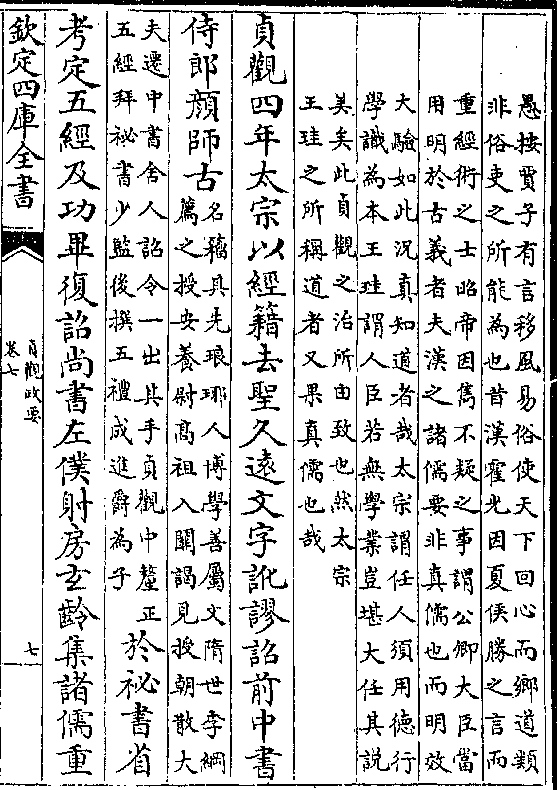 愚按賈子有言移風易俗使天下回心而鄉道類
非俗吏之所能為也昔漢霍光因夏侯勝之言而
重經術之士昭帝因雋不疑之事謂公卿大臣當
用明於古義者夫漢之諸儒要非真儒也而明效
大驗如此況真知道者哉太宗謂任人須用德行
學識為本王珪謂人臣若無學業豈堪大任其說
美矣此貞觀之治所由致也然太宗
王珪之所稱道者又果真儒也哉
貞觀四年太宗以經籍去聖久遠文字訛謬詔前中書
侍郎顏師古
名籕具先琅琊人博學善屬文隋世李綱
薦之授安養尉高祖入關謁見授朝散大
夫遷中書舍人詔令一出其手貞觀中釐正
五經拜祕書少監後撰五禮成進爵為子
於祕書省
考定五經及功畢復詔尚書左僕射房玄齡集諸儒重
欽定四庫全書
貞觀政要
卷七
七